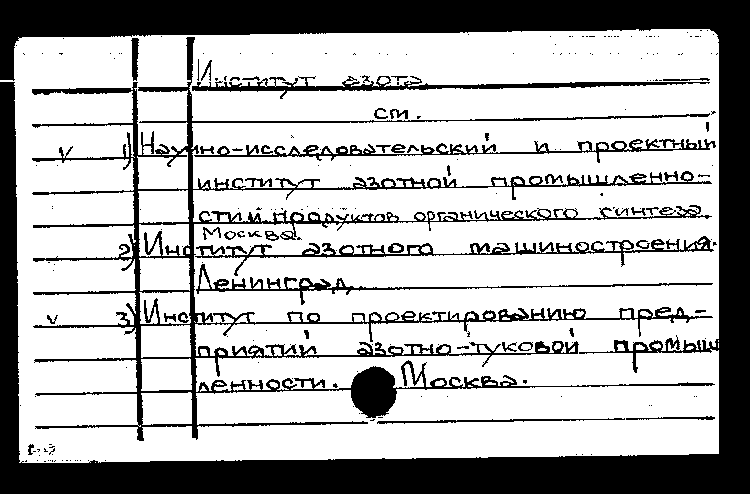 Институт азота
см.
v 1) Научно-исследовательский и проектный
институт азотной промышленно-
сти и продуктов органического синтеза.
Москва.
2) Институт азотного машиностроения.
Ленинград.
v 3) Институт по проектированию пред-
приятий азотно-туковой промыш
ленности. Москва.